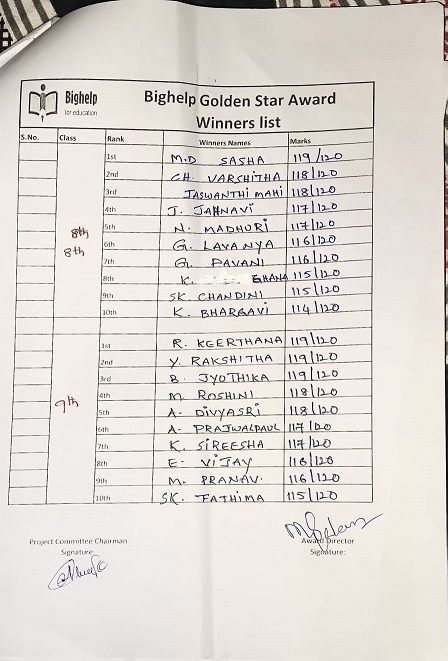 Bighelp
for education
Bighelp Golden Star Award
Winners list
S.No. Class Rank Winners Names Marks
1st M.D SASHA 119/120
2nd CH. VARSHITHA 118/120
3rd JASWANTHI MAHI 118/120
4th J. JAHNAVI 117/120
8th 5th N. MADHURI 117/120
8th 6th G. LAVANYA 116/120
7th G. PAVANI 116/120
8th K. GHANA 115/120
9th SK. CHANDINI 115/120
10th K. BHARGAVI 114/120
1st R. KEERTHANA 119/120
2nd Y. RAKSHITHA 119/120
3rd B. JYOTHIKA 119/120
9th 4th M. ROSHINI 118/120
5th A. DIVYASRI 118/120
6th A. PRAJWALPAUL 117/120
7th K. SIREESHA 117/120
8th E. VIJAY 116/120
9th M. PRANAV. 116/120
10th SK. FATHIMA 115/120
Project Committee Chairman
Signature:
Award Director
Signature: